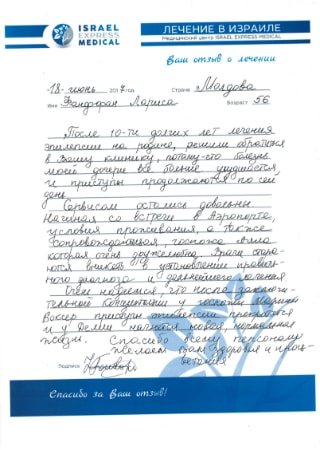 ISRAEL
EXPRESS
MEDICAL
ЛЕЧЕНИЕ В ИЗРАИЛЕ
Медицинский центр ISRAEL EXPRESS MEDICAL
Ваш отзыв о лечении
18-июнь 2017 года Страна Молдова
Имя Лариса Возраст 56
После 10-ти долгих лет лечения
эпилепсии на родине, решили обратится
в Вашу клинику, потому-что болезнь
моей дочери все больше ухудшается,
и приступы продолжаются по сей
день.
Сервисом остались довольны.
Начиная со встречи в Аэропорте,
условия проживания, а также
сопровождающая, госпожа Алла
которая очень дружелюбна. Врачи стара-
ются вникать в установлении правиль-
ного диагноза и дальнейшего лечения
Очень надеемся, что после заключи-
тельной консультации у госпожи Марины
приступы эпилепсии прекратятся
и у начнется новая, нормальная
жизнь. Спасибо всему персоналу
Желаем Вам здоровья и процв-
ветания
Подпись
Спасибо за Ваш отзыв!